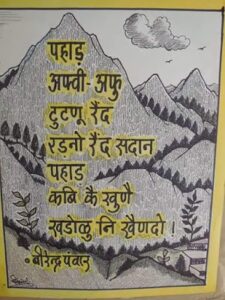 पहाड़
अफ्वी-अफु
टुटणू रैंद
रड़नो रैंद सदान
पहाड़
कबि कै खुणै
खडोळु नि खैणदो !
• बीरेन्द्र पंवार